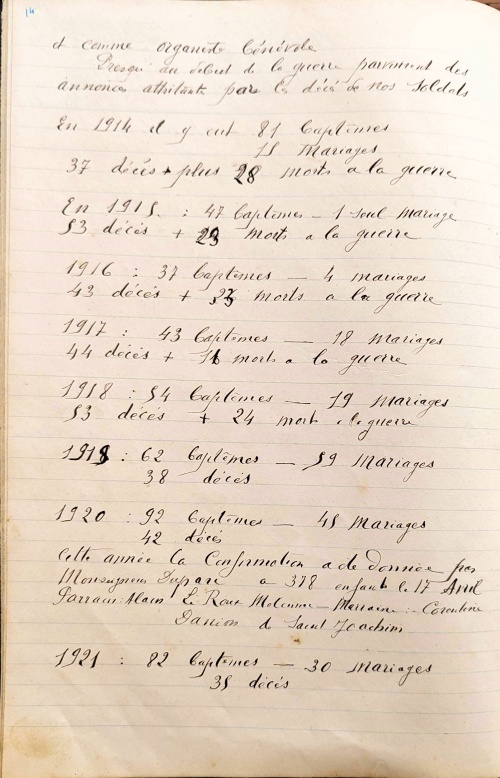 14
et comme organiste bénévole
Presqu' au début de la guerre parvinrent des
annonces attristants par les décès de nos soldats
En 1914 il y eut 81 baptêmes
15 mariages
37 décés + plus 28 morts a la guerre
En 1915. : 47 baptêmes - 1 seul mariage
53 décés + 23 morts a la guerre
1916 : 37 baptêmes — 4 mariages
43 décés + morts a la guerre
1917 : 43 baptêmes — 18 mariages
44 décés + morts a la guerre
1918 : 54 baptêmes — 19 mariages
53 décés + 24 mort guerre
1919 : 62 baptêmes — 59 mariages
38 décés
1920 : 92 baptêmes — 45 mariages
42 décés
Cette année la Confirmation a été donnée par
Monseigneur Duparc a 378 enfants le 17 Avril
Parrain: Alain Le Roux Marraine :
Danion de Saint Joachim
1921 : 82 baptêmes — 30 mariages
35 décés